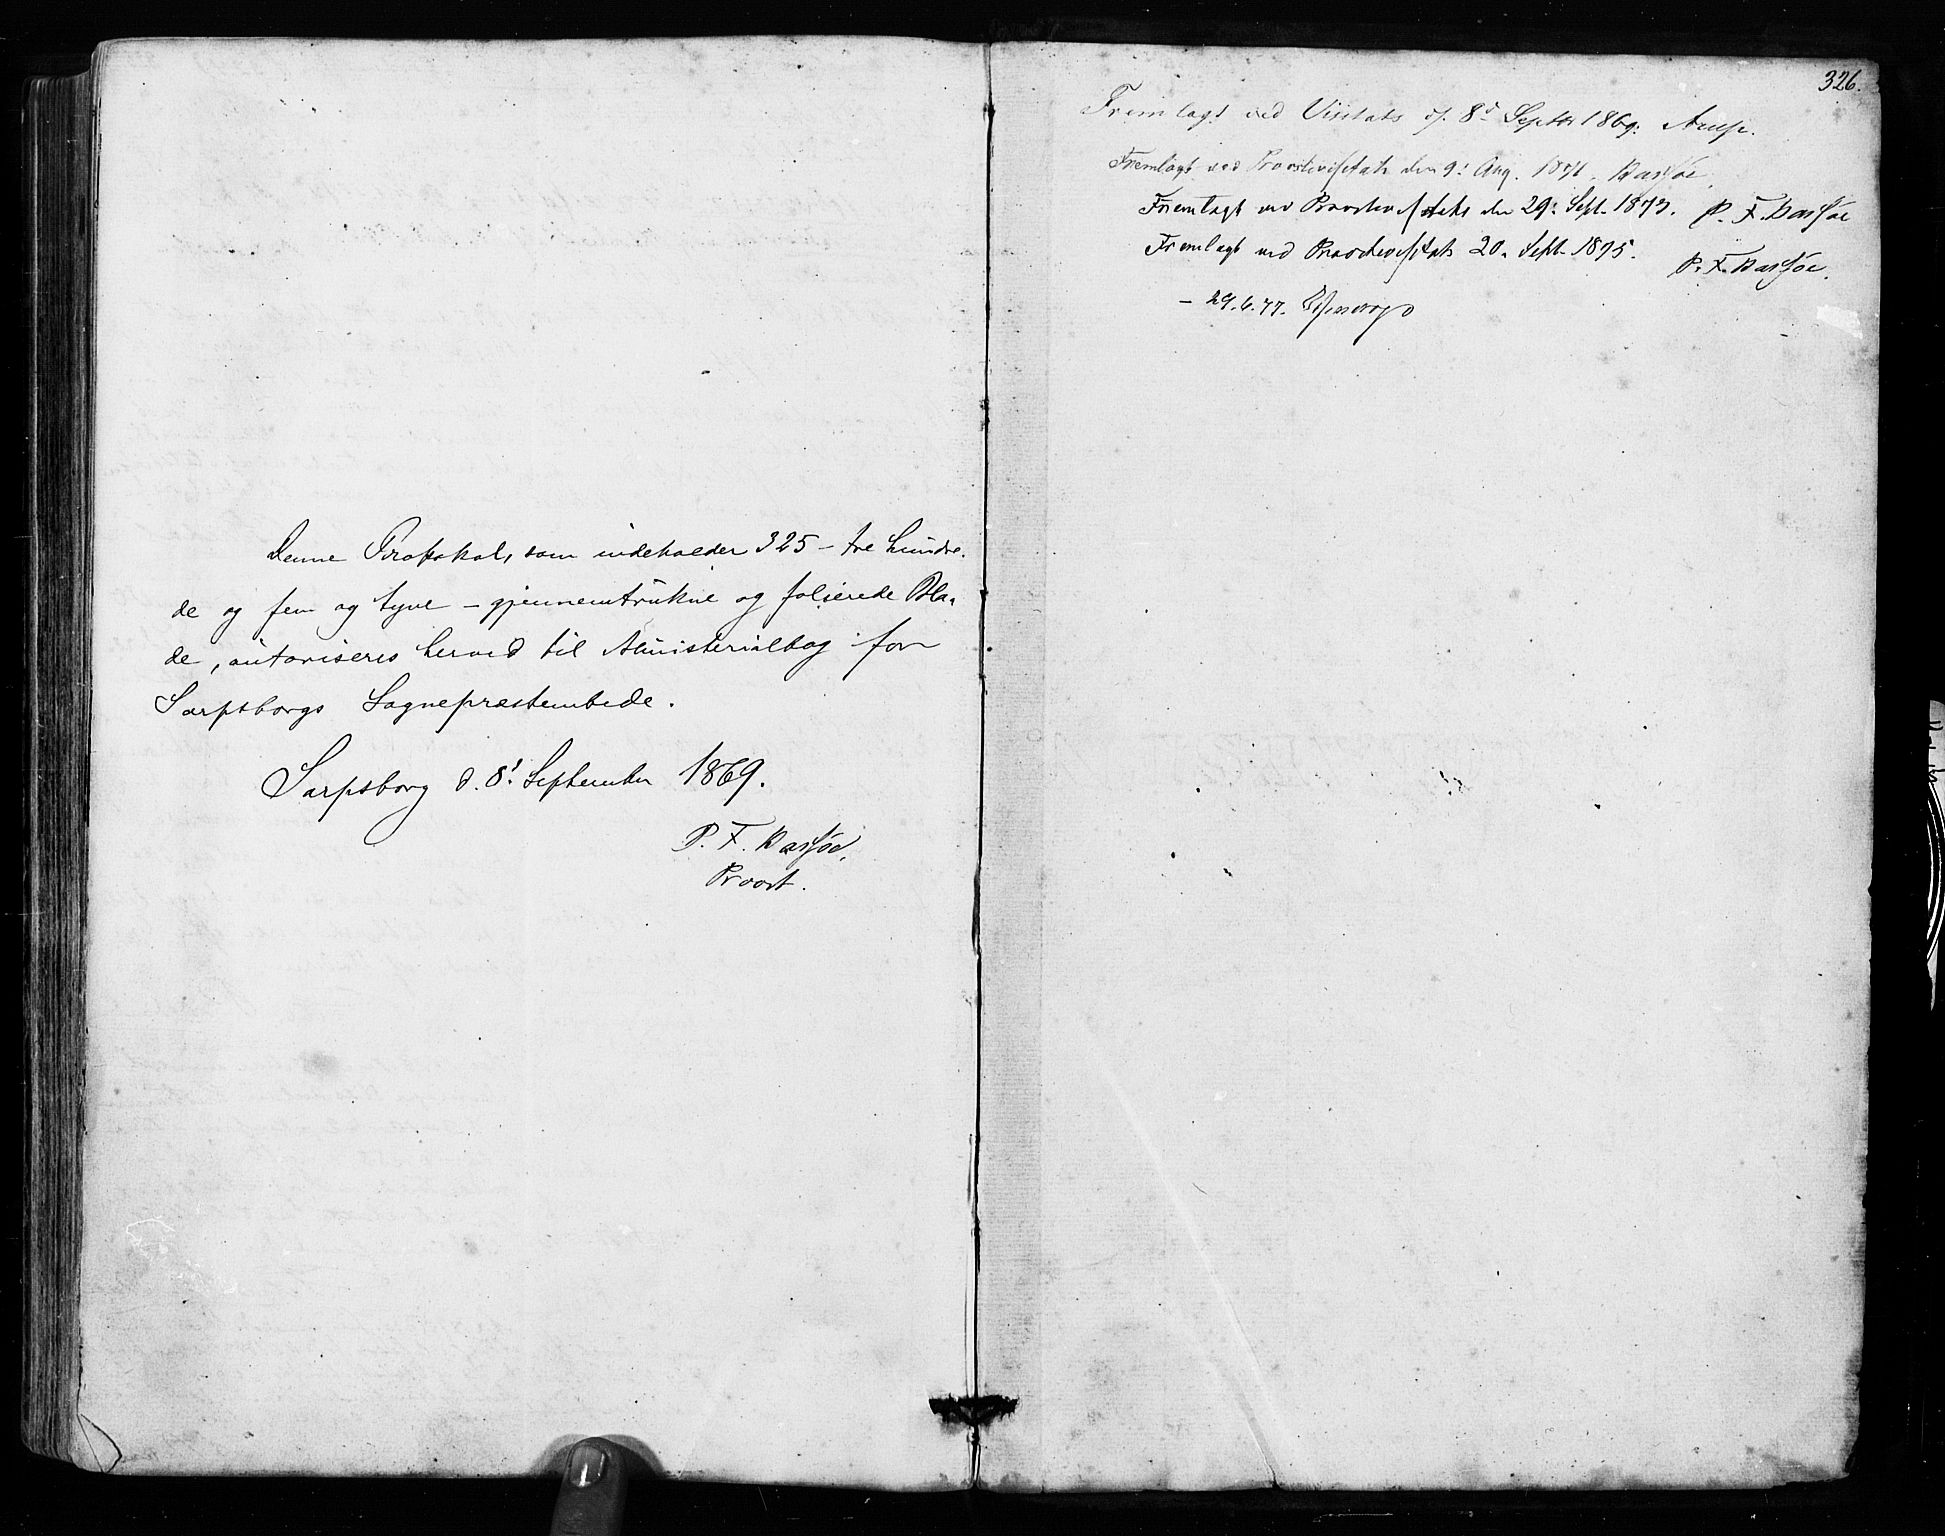 Denne Protokol, som indeholder 325 – tre hundre-
de og fem og tyve – gjennemtrukne og folierede Bla-
de, autoriseres herved til Ministerialbog for
Sarpsborgs Sognepræstembede.
Sarpsborg d. 8de September 1869.
P. F. Bassøe,
Provst.
326.
Fremlagt ved Visitats d. 8d Septbr 1869. Arup.
Fremlagt ved Provstevisitats den 9: Aug. 1871. Bassøe.
Fremlagt ved Provstevisitats den 29: Sept. 1873. P. F. Bassøe
Fremlagt ved Provstevisitats 20. Sept. 1875. P. F. Bassøe.
– 29.6.77.